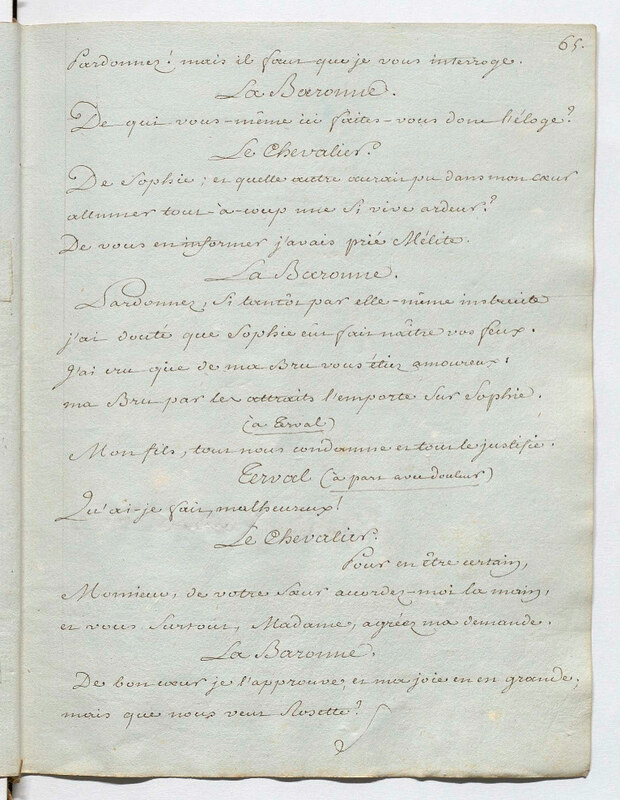 65.
Pardonnez! mais il faut que je vous interroge.
La Baronne.
De qui vous-même ici faites-vous donc l'éloge?
Le Chevalier.
De Sophie; et quelle autre aurait pu dans mon cœur
allumer tout-à-coup une si vive ardeur?
De vous en informer j'avais prié Mélite.
La Baronne.
Pardonnez, si tantôt par elle-même instruite
j'ai douté que Sophie eût fait naître vos feux.
J'ai cru que de ma Bru vous étiez amoureux:
ma Bru par les attraits l'emporte sur Sophie.
(à Terval)
Mon fils, tout nous condamne et tout le justifie.
Terval (à part avec douleur)
Qu'ai-je fait, malheureux!
Le Chevalier.
Pour en être certain,
Monsieur, de votre sœur accordez-moi la main,
et vous surtout, Madame, agréez ma demande.
La Baronne.
De bon cœur je l'approuve, et ma joie en est grande;
mais que nous veut Rosette?